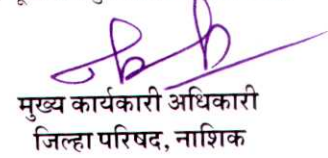 मुख्य कार्यकारी अधिकारी
जिल्हा परिषद, नाशिक